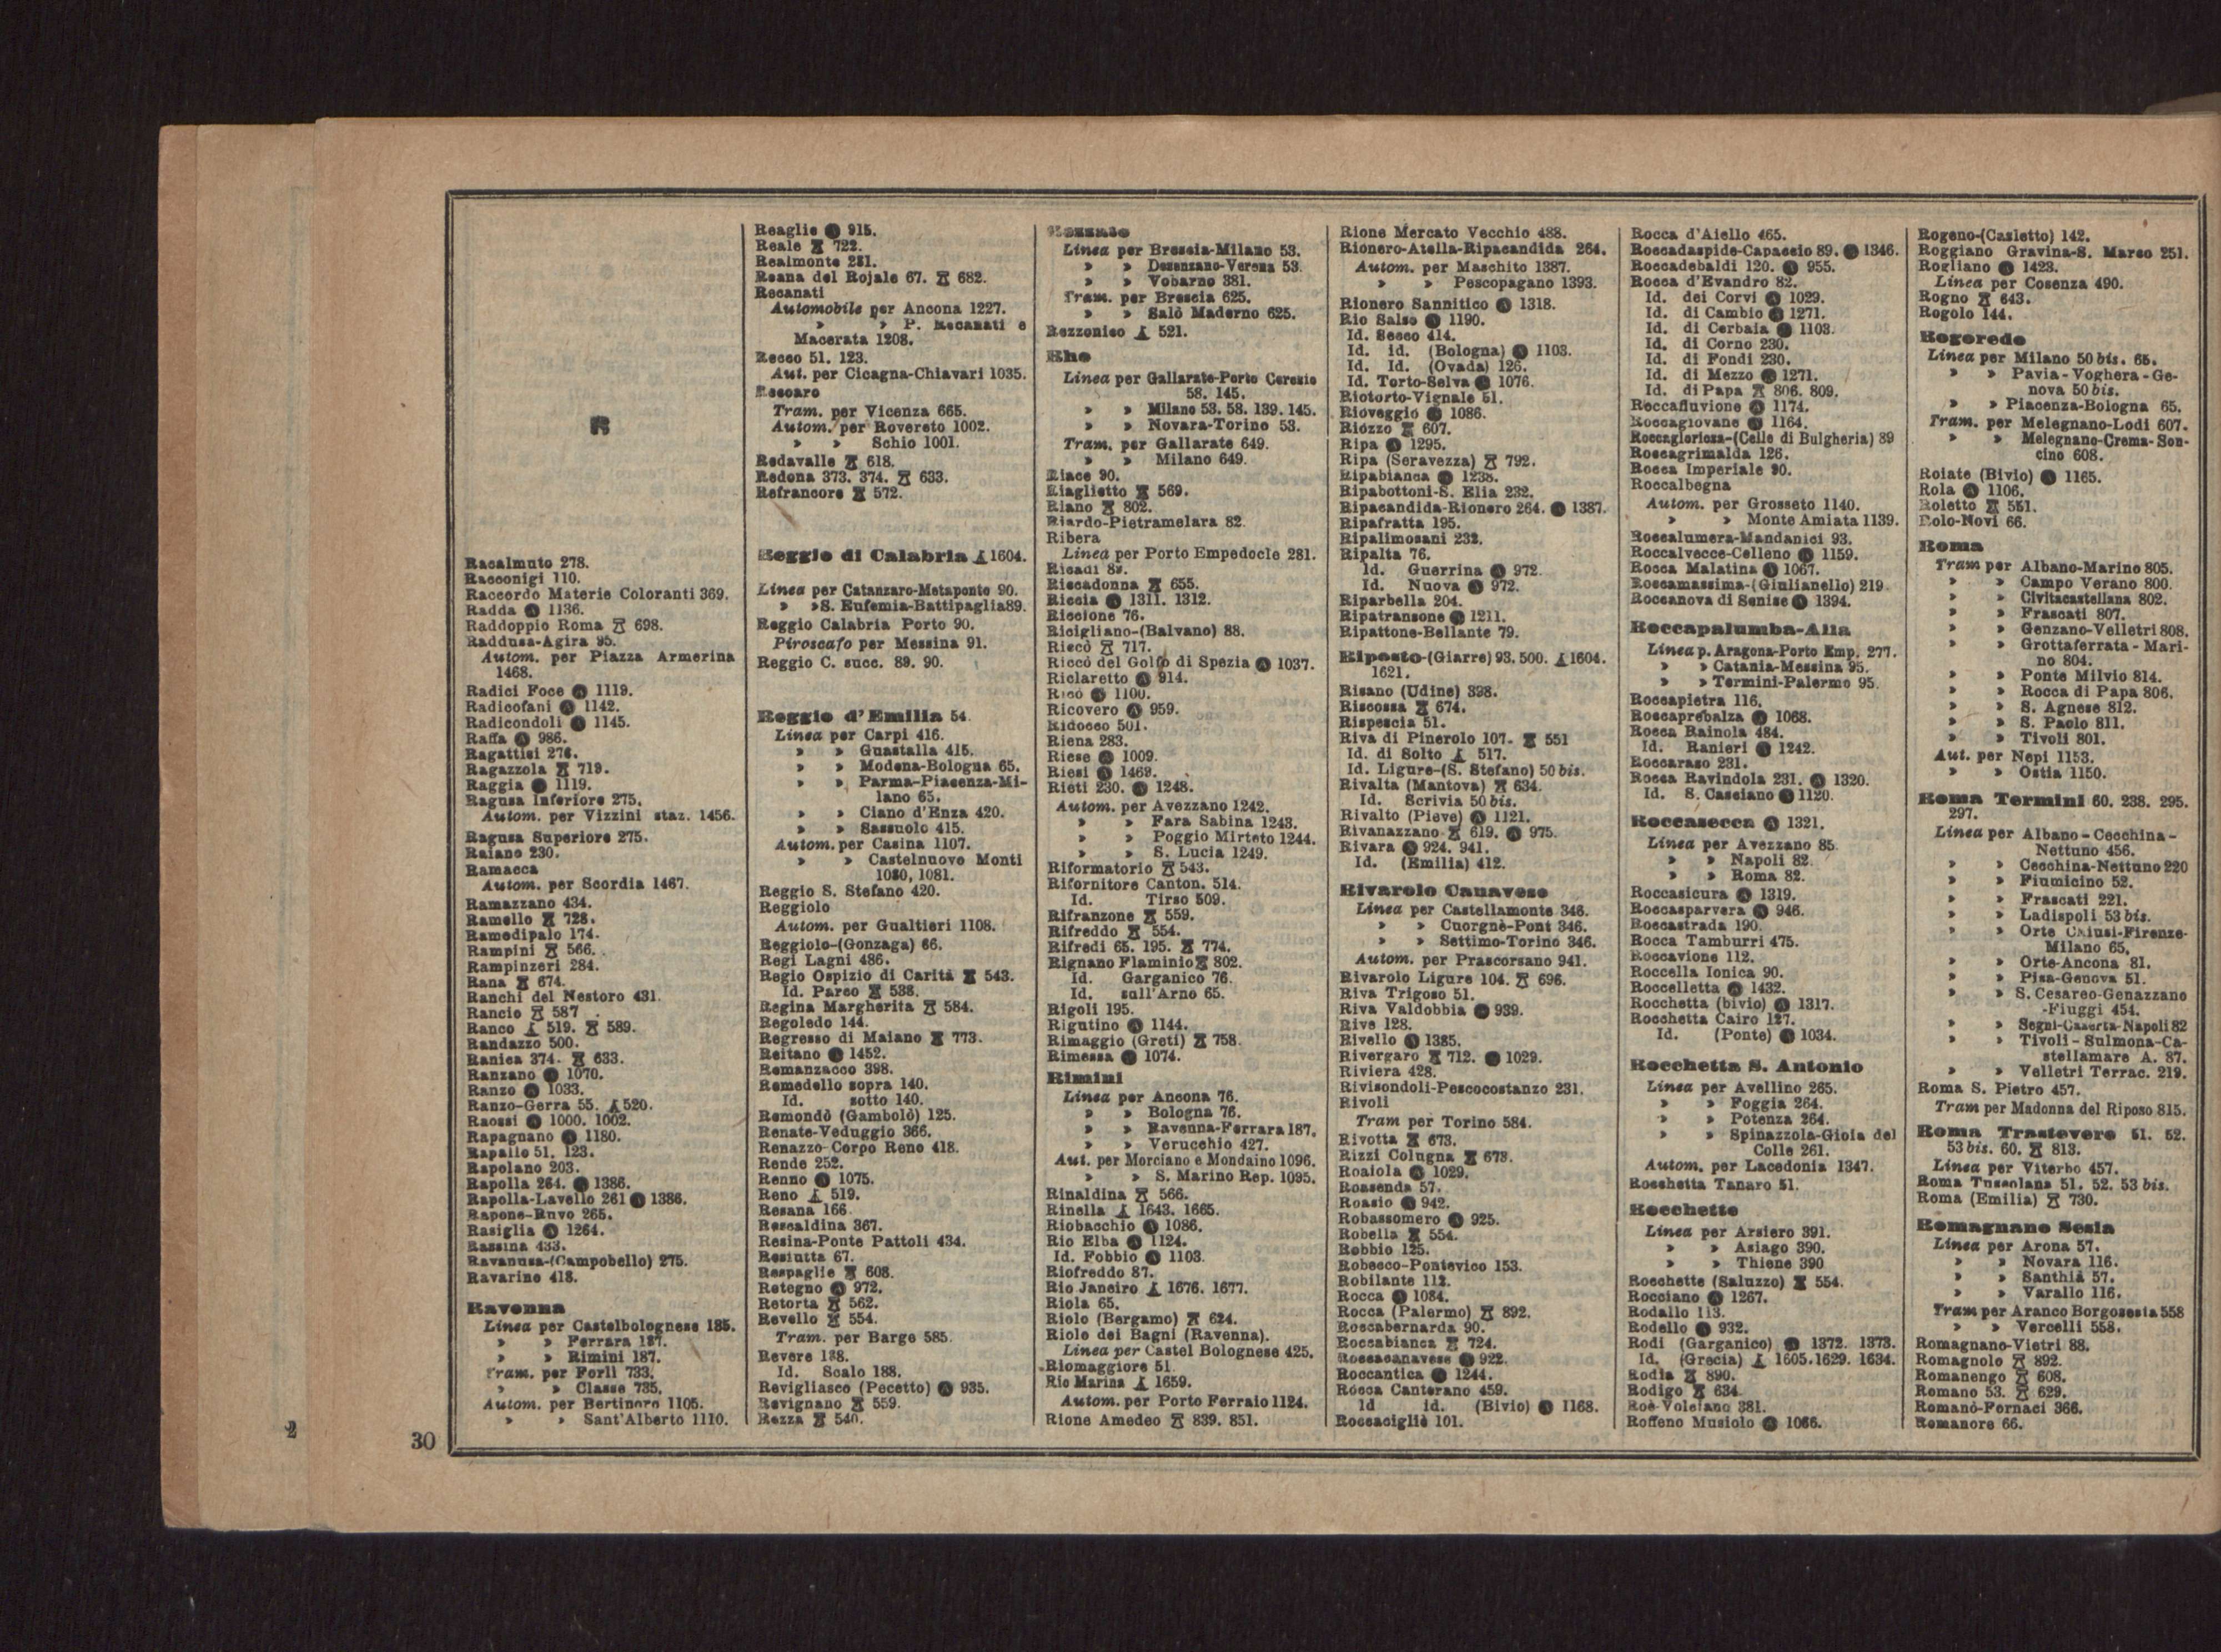 R
Racalmuto 278.
Racconigi 110.
Raccordo Materie Coloranti 369.
Radda 1136.
Raddoppio Roma 698.
Raddusa-Agira 95.
Autom. per Piazza Armerina
1468.
Radici Foce 1119.
Radicofani 1142.
Radicondoli 1145.
Raffa 986.
Ragattisi 276.
Ragazzola 719.
Raggia 1119.
Ragusa Inferiore 275.
Autom. per Vizzini staz. 1456.
Ragusa Superiore 275.
Raiano 230.
Ramacca
Autom. per Scordia 1467.
Ramazzano 434.
Ramello 728.
Ramedipalo 174.
Rampini 566.
Rampinzeri 284.
Rana 674.
Ranchi del Nestoro 431.
Rancio 587
Ranco 519. 589.
Randazzo 500.
Ranica 374. 633.
Ranzano 1070.
Ranzo 1033.
Ranzo-Gerra 55. 520.
Raossi 1000. 1002.
Rapagnano 1180.
Rapallo 51. 123.
Rapolano 203.
Rapolla 264. 1386.
Rapolla-Lavello 261 1386.
Rapone-Ruvo 265.
Rasiglia 1264.
Rassina 433.
Ravanusa-(Campobello) 275.
Ravarino 418.
Ravenna
Linea per Castelbolognese 185.
» » Ferrara 187.
» » Rimini 187.
Tram. per Forlì 733.
» » Classe 735.
Autom. per Bertinoro 1105.
» » Sant'Alberto 1110.
Reaglie 915.
Reale 722.
Realmonte 281.
Reana del Rojale 67. 682.
Recanati
Automobile per Ancona 1227.
» » P. Recanati e
Macerata 1208.
Recco 51. 123.
Aut. per Cicagna-Chiavari 1035.
Recoaro
Tram. per Vicenza 665.
Autom. per Rovereto 1002.
» » Schio 1001.
Redavalle 618.
Redona 373. 374. 633.
Refrancore 572.
Reggio di Calabria 1604.
Linea per Catanzaro-Metaponto 90.
» »S. Eufemia-Battipaglia89.
Reggio Calabria Porto 90.
Piroscafo per Messina 91.
Reggio C. succ. 89. 90.
Reggio d'Emilia 54.
Linea per Carpi 416.
» » Guastalla 415.
» » Modena-Bologna 65.
» » Parma-Piacenza-Mi-
lano 65.
» » Ciano d'Enza 420.
» » Sassuolo 415.
Autom. per Casina 1107.
» » Castelnuovo Monti
1080, 1081.
Reggio S. Stefano 420.
Reggiolo
Autom. per Gualtieri 1108.
Reggiolo-(Gonzaga) 66.
Regi Lagni 486.
Regio Ospizio di Carità 543.
Id. Parco 538.
Regina Margherita 584.
Regoledo 144.
Regresso di Maiano 773.
Reitano 1452.
Remanzacco 398.
Remedello sopra 140.
Id. sotto 140.
Remondò (Gambolò) 125.
Renate-Veduggio 366.
Renazzo-Corpo Reno 418.
Rende 252.
Renno 1075.
Reno 519.
Resana 166
Rescaldina 367.
Resina-Ponte Pattoli 434.
Resiutta 67.
Respaglie 608.
Retegno 972.
Retorta 562.
Revello 554.
Tram. per Barge 585.
Revere 188.
Id. Scalo 188.
Revigliasco (Pecetto) 935.
Revignano 559.
Rezza 540.
Rezzato
Linea per Brescia-Milano 53.
» » Desenzano-Verona 53.
» » Vobarno 381.
Tram. per Brescia 625.
» » Salò Maderno 625.
Rezzonico 521.
Rho
Linea per Gallarate-Porto Ceresio
58. 145.
» » Milano 53. 58. 139. 145.
» » Novara-Torino 53.
Tram. per Gallarate 649.
» » Milano 649.
Riace 90.
Riaglietto 569.
Riano 802.
Riardo-Pietramelara 82.
Ribera
Linea per Porto Empedocle 281.
Ricadi 89.
Riscadonna 655.
Riccia 1311. 1312.
Riccione 76.
Ricigliano-(Balvano) 88.
Riscò 717.
Riccò del Golfo di Spezia 1037.
Riclaretto 914.
Ricò 1100.
Ricovero 959.
Ridocco 501.
Riena 283.
Riese 1009.
Riesi 1469.
Rieti 230. 1248.
Autom. per Avezzano 1242.
» » Fara Sabina 1243.
» » Poggio Mirteto 1244.
» » S. Lucia 1249.
Riformatorio 543.
Rifornitore Canton. 514.
Id. Tirso 509.
Rifranzone 559.
Rifreddo 554.
Rifredi 65. 195. 774.
Rignano Flaminio 802.
Id. Garganico 76.
Id. sull'Arno 65.
Rigoli 195.
Rigutino 1144.
Rimaggio (Greti) 758.
Rimessa 1074.
Rimini
Linea per Ancona 76.
» » Bologna 76.
» » Ravenna-Ferrara 187.
» » Verucchio 427.
Aut. per Morciano e Mondaino 1096.
» » S. Marino Rep. 1095.
Rinaldina 566.
Rinella 1643. 1665.
Riobacchio 1086.
Rio Elba 1124.
Id. Fobbio 1103.
Riofreddo 87.
Rio Janeiro 1676. 1677.
Riola 65.
Riolo (Bergamo) 624.
Riolo dei Bagni (Ravenna).
Linea per Castel Bolognese 425.
Riomaggiore 51.
Rio Marina 1659.
Autom. per Porto Ferraio 1124.
Rione Amedeo 839. 851.
Rione Mercato Vecchio 488.
Rionero-Atella-Ripacandida 264.
Autom. per Maschito 1387.
» » Pescopagano 1393.
Rionero Sannitico 1318.
Rio Salso 1190.
Id. Secco 414.
Id. id. (Bologna) 1103.
Id. Id. (Ovada) 126.
Id. Torto-Selva 1076.
Riotorto-Vignale 51.
Rioveggio 1086.
Riozzo 607.
Ripa 1295.
Ripa (Seravezza) 792.
Ripabianca 1238.
Ripabottoni-S. Elia 232.
Ripacandida-Rionero 264. 1387.
Ripafratta 195.
Ripalimosani 232.
Ripalta 76.
Id. Guerrina 972.
Id. Nuova 972.
Riparbella 204.
Ripatransone 1211.
Ripattone-Bellante 79.
Riposto-(Giarre) 93. 500. 1604.
1621.
Risano (Udine) 398.
Riscossa 674.
Rispescia 51.
Riva di Pinerolo 107. 551
Id. di Solto 517.
Id. Ligure-(S. Stefano) 50 bis.
Rivalta (Mantova) 634.
Id. Scrivia 50 bis.
Rivalto (Pieve) 1121.
Rivanazzano 619. 975.
Rivara 924. 941.
Id. (Emilia) 412.
Rivarolo Canavese
Linea per Castellamonte 346.
» » Cuorgnè-Pont 346.
» » Settimo-Torino 346.
Autom. per Prascorsano 941.
Rivarolo Ligure 104. 696.
Riva Trigoso 51.
Riva Valdobbia 939.
Rive 128.
Rivello 1385.
Rivergaro 712. 1029.
Riviera 428.
Rivisondoli-Pescocostanzo 231.
Rivoli
Tram per Torino 584.
Rivotta 673.
Rizzi Colugna 678.
Roaiola 1029.
Roasenda 57.
Roasio 942.
Robassomero 925.
Robella 554.
Robbio 125.
Robecco-Pontevico 153.
Robilante 112.
Rocca 1084.
Rocca (Palermo) 892.
Roccabernarda 90.
Roccabianca 724.
Roccacanavese 922.
Roccantica 1244.
Rocca Canterano 459.
Id id. (Bivio) 1168.
Roccacigliè 101.
Rocca d'Aiello 465.
Roccadaspide-Capaccio 89. 1346.
Roccadebaldi 120. 955.
Rocca d'Evandro 82.
Id. dei Corvi 1029.
Id. di Cambio 1271.
Id. di Cerbaia 1103.
Id. di Corno 230.
Id. di Fondi 230.
Id. di Mezzo 1271.
Id. di Papa 806. 809.
Roccafluvione 1174.
Roccagiovane 1164.
Roccagloriosa-(Celle di Bulgheria) 89
Roccagrimalda 126.
Rocca Imperiale 90.
Roccalbegna
Autom. per Grosseto 1140.
» » Monte Amiata 1139.
Roccalumera-Mandanici 93.
Roccalvecce-Celleno 1159.
Rocca Malatina 1067.
Roccamassima-(Giulianello) 219
Roccanova di Senise 1394.
Roccapalumba-Alia
Linea p. Aragona-Porto Emp. 277.
» » Catania-Messina 95.
» » Termini-Palermo 95.
Roccapietra 116.
Roccaprebalza 1068.
Rocca Rainola 484.
Id. Ranieri 1242.
Roccaraso 231.
Rocca Ravindola 231. 1320.
Id. S. Casciano 1120.
Roccasecca 1321.
Linea per Avezzano 85.
» » Napoli 82.
» » Roma 82.
Roccasicura 1319.
Roccasparvera 946.
Roccastrada 190.
Rocca Tamburri 475.
Roccavione 112.
Roccella Ionica 90.
Roccelletta 1432.
Rocchetta (bivio) 1317.
Rocchetta Cairo 127.
Id. (Ponte) 1034.
Rocchetta S. Antonio
Linea per Avellino 265.
» » Foggia 264.
» » Potenza 264.
» » Spinazzola-Gioia del
Colle 261.
Autom. per Lacedonia 1347.
Rocchetta Tanaro 51.
Rocchette
Linea per Arsiero 391.
» » Asiago 390.
» » Thiene 390
Rocchette (Saluzzo) 554.
Rocciano 1267.
Rodallo 113.
Rodello 932.
Rodi (Garganico) 1372. 1373.
Id. (Grecia) 1605.1629. 1634.
Rodia 890.
Rodigo 634.
Roè-Volciano 381.
Roffeno Musiolo 1066.
Rogeno-(Casletto) 142.
Roggiano Gravina-S. Marco 251.
Rogliano 1423.
Linea per Cosenza 490.
Rogno 643.
Rogolo 144.
Rogoredo
Linea per Milano 50 bis. 65.
» » Pavia-Voghera-Ge-
nova 50 bis.
» » Piacenza-Bologna 65.
Tram. per Melegnano-Lodi 607.
» » Melegnano-Crema-Son-
cino 608.
Roiate (Bivio) 1165.
Rola 1106.
Roletto 551.
Rolo-Novi 66.
Roma
Tram per Albano-Marino 805.
» » Campo Verano 800.
» » Civitacastellana 802.
» » Frascati 807.
» » Genzano-Velletri 808.
» » Grottaferrata-Mari-
no 804.
» » Ponte Milvio 814.
» » Rocca di Papa 806.
» » S. Agnese 812.
» » S. Paolo 811.
» » Tivoli 801.
Aut. per Nepi 1153.
» » Ostia 1150.
Roma Termini 60. 238. 295.
297.
Linea per Albano-Cecchina-
Nettuno 456.
» » Cecchina-Nettuno 220
» » Fiumicino 52.
» » Frascati 221.
» » Ladispoli 53 bis.
» » Orte Chiusi-Firenze-
Milano 65.
» » Orte-Ancona 81.
» » Pisa-Genova 51.
» » S. Cesareo-Genazzano
-Fiuggi 454.
» » Segni-Caserta-Napoli 82
» » Tivoli-Sulmona-Ca-
stellamare A. 87.
» » Velletri Terrac. 219.
Roma S. Pietro 457.
Tram per Madonna del Riposo 815.
Roma Trastevere 51. 52.
53 bis. 60. 813.
Linea per Viterbo 457.
Roma Tuscolana 51. 52. 53 bis.
Roma (Emilia) 730.
Romagnano Sesia
Linea per Arona 57.
» » Novara 116.
» » Santhià 57.
» » Varallo 116.
Tram per Aranco Borgosesia 558
» » Vercelli 558.
Romagnano-Vietri 88.
Romagnolo 892.
Romanengo 608.
Romano 53. 629.
Romanò-Fornaci 366.
Romanore 66.
30
2